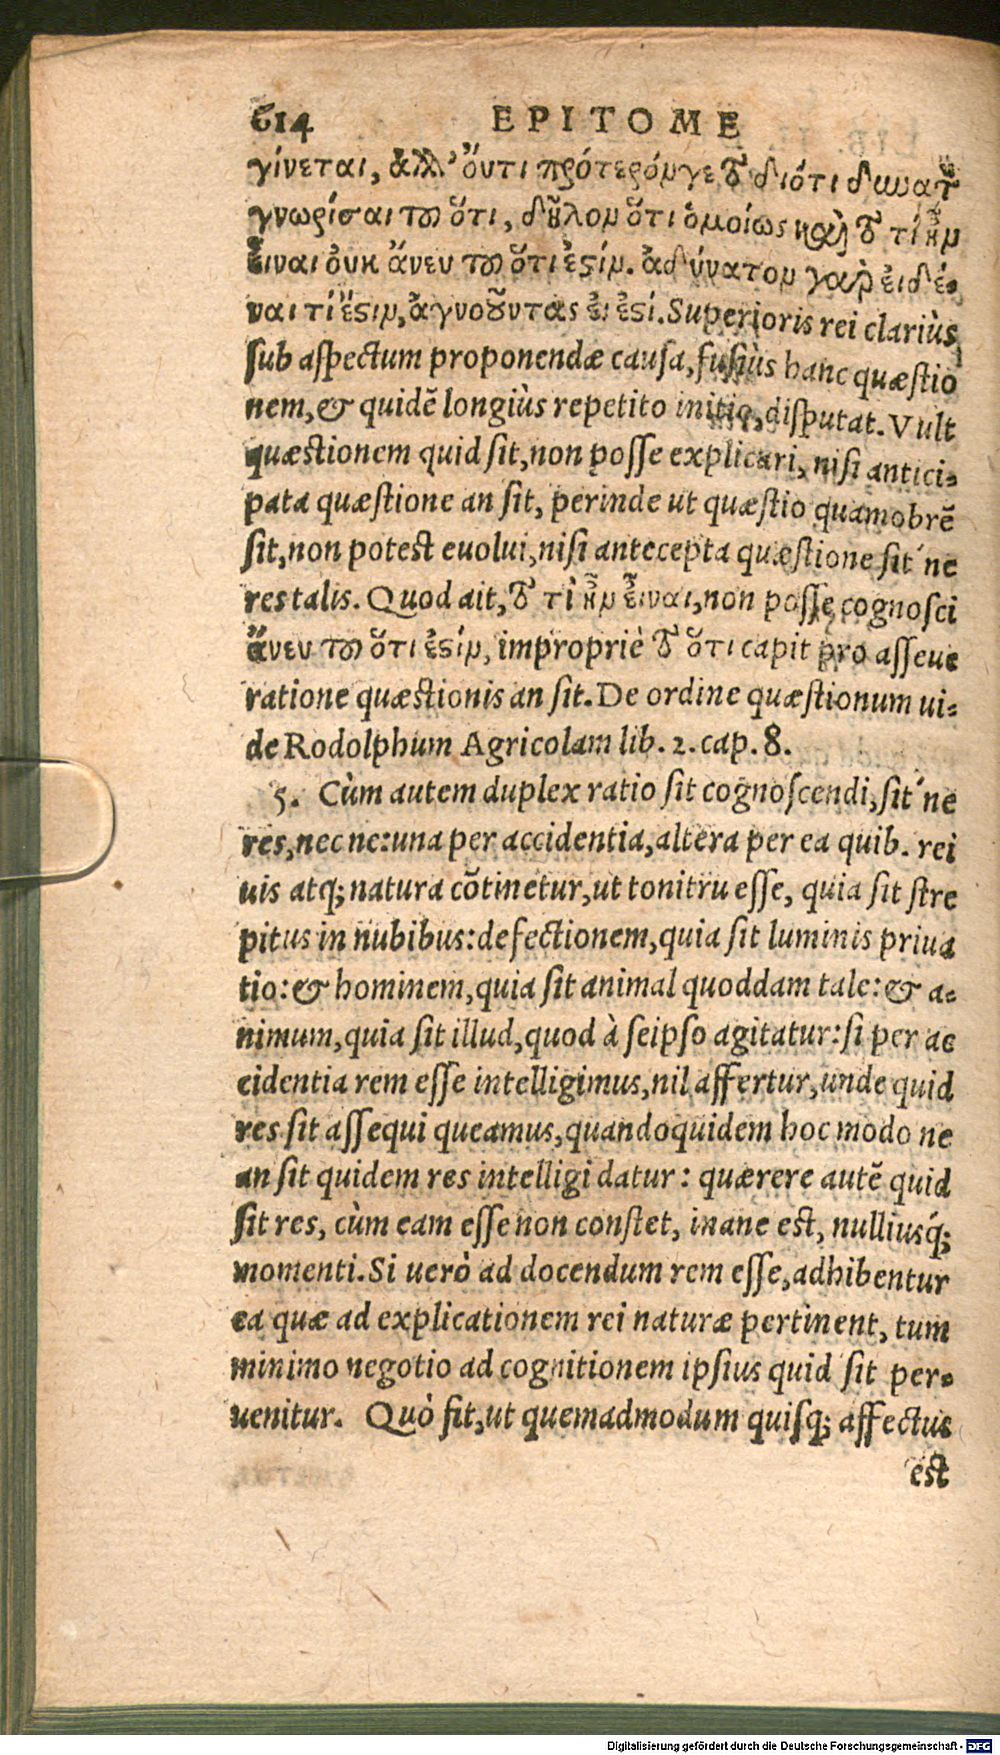 614 EPITOME
γίνεται, ἀλλ' ὄυτι πρότερόν γε τὸ διότι δυνατὸν
γνωρίσαι τοῦ ὅτι, δῆλον ὅτι ὁμοίως καὶ τὸ τί ἦν
εἶναι ὀυκ ἄνευ τοῦ ὅτι ἐστίν. ἀδύνατον γὰρ ἐιδέ-
ναι τί ἔστιν, ἀγνοοῦντας ἐι ἐστί. Superioris rei clariùs
sub aspectum proponendæ causa, fusiùs hanc quæstio
nem, & quidē longiùs repetito initio, disputat. Vult
quæstionem quid sit, non posse explicari, nisi antici-
pata quæstione an sit, perinde ut quæstio quamobrē
sit, non potest euolui, nisi antecepta quæstione sit'ne
res talis. Quod ait, τὸ τὶ ἦν εἶναι, non posse cognosci
ἄνευ τοῦ ὅτι ἐστίν, impropriè τὸ ὅτι capit pro asseue
ratione quæstionis an sit. De ordine quæstionum ui-
de Rodolphum Agricolam lib. 2. cap. 8.
5. Cùm autem duplex ratio sit cognoscendi, sit'ne
res, nec ne: una per accidentia, altera per ea quib. rei
uis atq; natura cōtinetur, ut tonitru esse, quia sit stre
pitus in nubibus: defectionem, quia sit luminis priua
tio: & hominem, quia sit animal quoddam tale: & a-
nimum, quia sit illud, quod à seipso agitatur: si per ac
cidentia rem esse intelligimus, nil affertur, unde quid
res sit assequi queamus, quandoquidem hoc modo ne
an sit quidem res intelligi datur: quærere autē quid
sit res, cùm eam esse non constet, inane est, nulliusq́;
momenti. Si uerò ad docendum rem esse, adhibentur
ea quæ ad explicationem rei naturæ pertinent, tum
minimo negotio ad cognitionem ipsius quid sit per-
uenitur. Quò fit, ut quemadmodum quisq; affectus
est
Digitalisierung gefördert durch die Deutsche Forschungsgemeinschaft - DFG